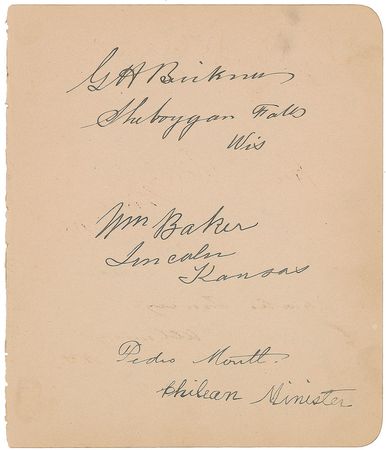 G H Brickner
Sheboygan Falls
Wis
Wm Baker
Lincoln
Kansas
Pedro Montt.
Chilean Minister